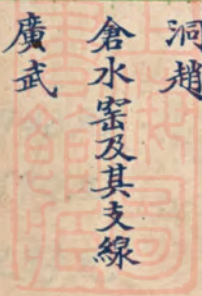 洞趙
倉水窑及其支線
廣武